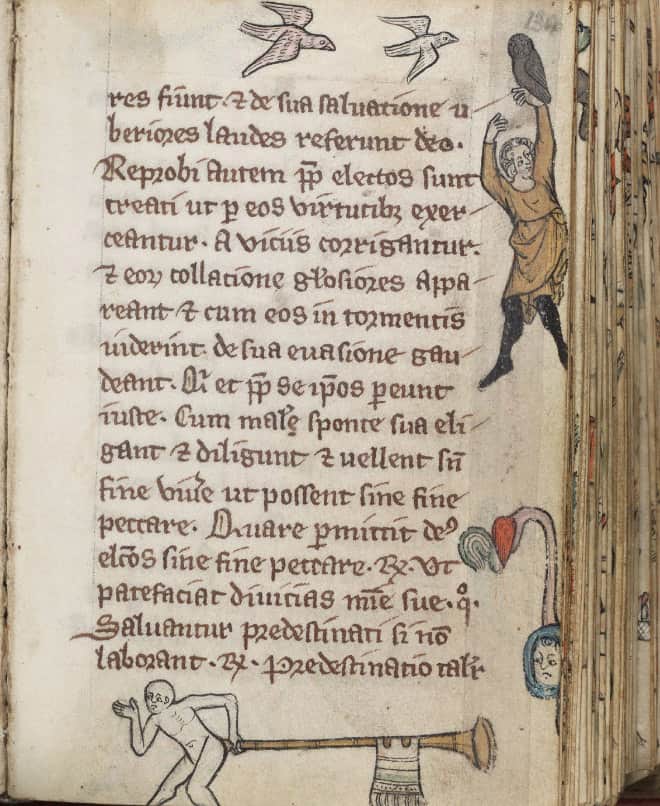 134
res fiūnt ⁊ de sua saluatione u
beriores laudes referunt deo.
Reprobi autem ꝓp̄ electos sunt
creati ut ꝑ eos virtutibꝫ exer
ceantur. A viciis corrigantur.
⁊ eoꝝ collacione gl̄osiores appa
reant ⁊ cum eos in tormentis
uiderint. de sua euasione gau
deant. et ꝓp̄ se ip̄os ꝑeunt
iuste. Cum sponte sua eli
gant ⁊ diligunt ⁊ uellent sn̄
fine viu̾e ut possent sine fine
peccare. Quare ꝑmittit deꝰ
elc̄os sine fine peccare. ℞. Vt
patefaciat diuicias mīe sue. q̊.
Saluantur predestinati si nō
laborant. ℞. Predestinatio